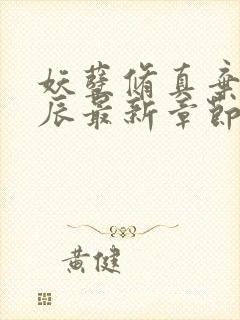 妖孽脩真棄
辰最新章節
黃健